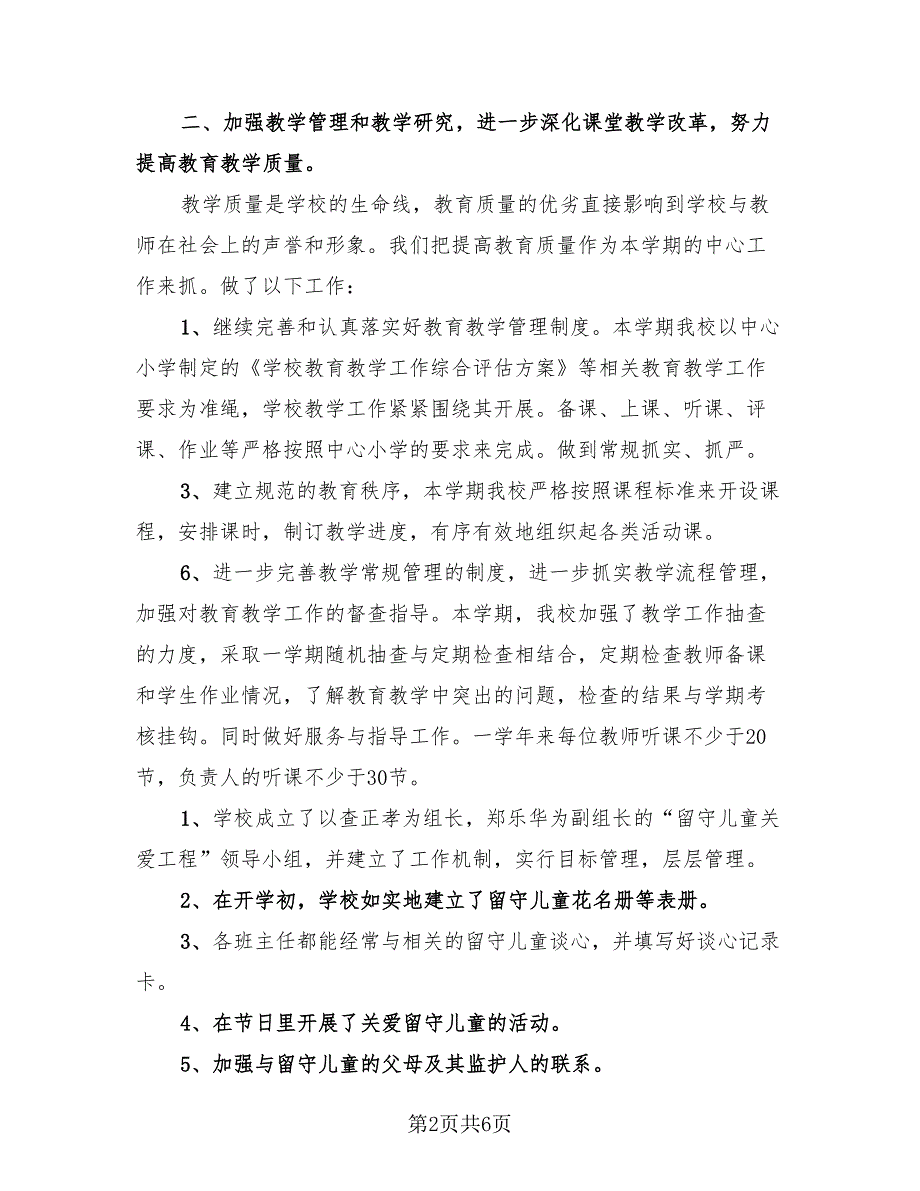 二、加强教学管理和教学研究，进一步深化课堂教学改革，努力
提高教育教学质量。
教学质量是学校的生命线，教育质量的优劣直接影响到学校与教
师在社会上的声誉和形象。我们把提高教育质量作为本学期的中心工
作来抓。做了以下工作：
1、继续完善和认真落实好教育教学管理制度。本学期我校以中心
小学制定的《学校教育教学工作综合评估方案》等相关教育教学工作
要求为准绳，学校教学工作紧紧围绕其开展。备课、上课、听课、评
课、作业等严格按照中心小学的要求来完成。做到常规抓实、抓严。
3、建立规范的教育秩序，本学期我校严格按照课程标准来开设课
程，安排课时，制订教学进度，有序有效地组织起各类活动课。
6、进一步完善教学常规管理的制度，进一步抓实教学流程管理，
加强对教育教学工作的督查指导。本学期，我校加强了教学工作抽查
的力度，采取一学期随机抽查与定期检查相结合，定期检查教师备课
和学生作业情况，了解教育教学中突出的问题，检查的结果与学期考
核挂钩。同时做好服务与指导工作。一学年来每位教师听课不少于20
节，负责人的听课不少于30节。
1、学校成立了以查正孝为组长，郑乐华为副组长的“留守儿童关
爱工程”领导小组，并建立了工作机制，实行目标管理，层层管理。
2、在开学初，学校如实地建立了留守儿童花名册等表册。
3、各班主任都能经常与相关的留守儿童谈心，并填写好谈心记录
卡。
4、在节日里开展了关爱留守儿童的活动。
5、加强与留守儿童的父母及其监护人的联系。
第2页共6页